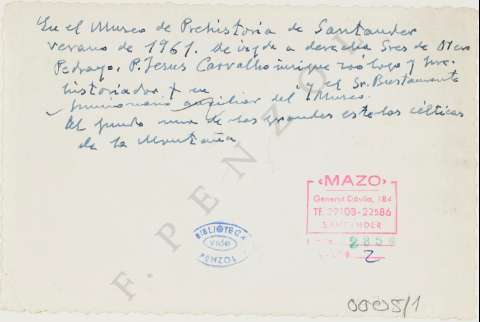 En el Museo de Prehistoria de Santander
verano de 1961. De izqda a derecha Sres de Otero
Pedrayo, P. Jesus Carvallo insigne zoólogo y pre-
historiador + un y el Sr. Bustamante
funcionario auxiliar del Museo.
Al fondo una de las grandes estelas célticas
de la Montaña
F. PENZOL
‹MAZO›
General Dávila, 184
TF. 22103-22586
SANTANDER
2
BIBLIOTECA
Vigo
PENZOL
0005/1